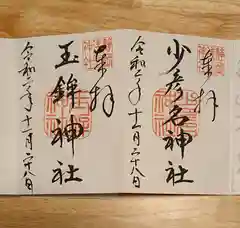 奉拝
少彦名神社
令和二年十一月二十八日
奉拝
玉鉾神社
令和二年十一月二十八日